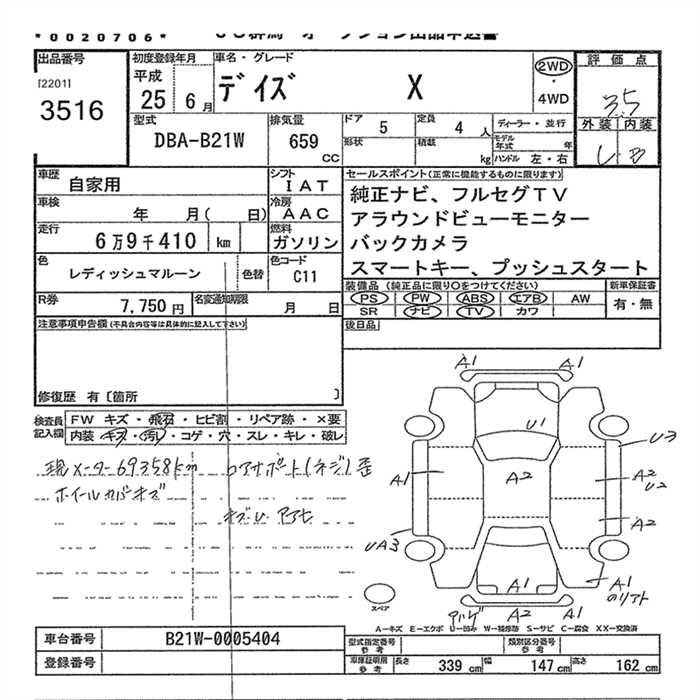 *0020706*
出品番号
[2201]
3516
初度登録年月
平成
25年6月
車名・グレード
デイズ X
2WD
・
4WD
評価点
3.5
外装 内装
型式
DBA-B21W
排気量
659
CC
ドア 5
定員 4人
形状
積載 kg
ディーラー・並行
モデル年式 年
ハンドル 左・右
車歴
自家用
シフト
IAT
車検
年 月( 日)
冷房
AAC
走行
6万9千410 km
燃料
ガソリン
色
レディッシュマルーン
色替
色コード
C11
R券
7,750円
名変通知期限
月 日
セールスポイント(正常に機能するものに限ります)
純正ナビ、フルセグTV
アラウンドビューモニター
バックカメラ
スマートキー、プッシュスタート
装備品(純正品に限り○をつけてください)
PS PW ABS エアB AW
SR ナビ TV カワ
新車保証書
有・無
後日品
注意事項申告欄(不具合内容等は具体的に記入して下さい)
修復歴 有〔箇所 〕
検査員
記入欄
FW キズ・飛石・ヒビ割・リペア跡・×要
内装・キズ・汚れ・コゲ・穴・スレ・キレ・破レ
現メーター69358km
ホイールカバーキズ
A1 A1
U1
U3
A1
A2
A2
U2
A2
UA3
A1
A1
A2
A1
スペア
A-キズ E-エクボ U-凹み W-補修跡 S-サビ C-腐食 XX-交換済
車台番号
B21W-0005404
登録番号
型式指定番号
参考
類別区分番号
参考
車庫証明用
参考
長さ 339 cm
幅 147 cm
高さ 162 cm